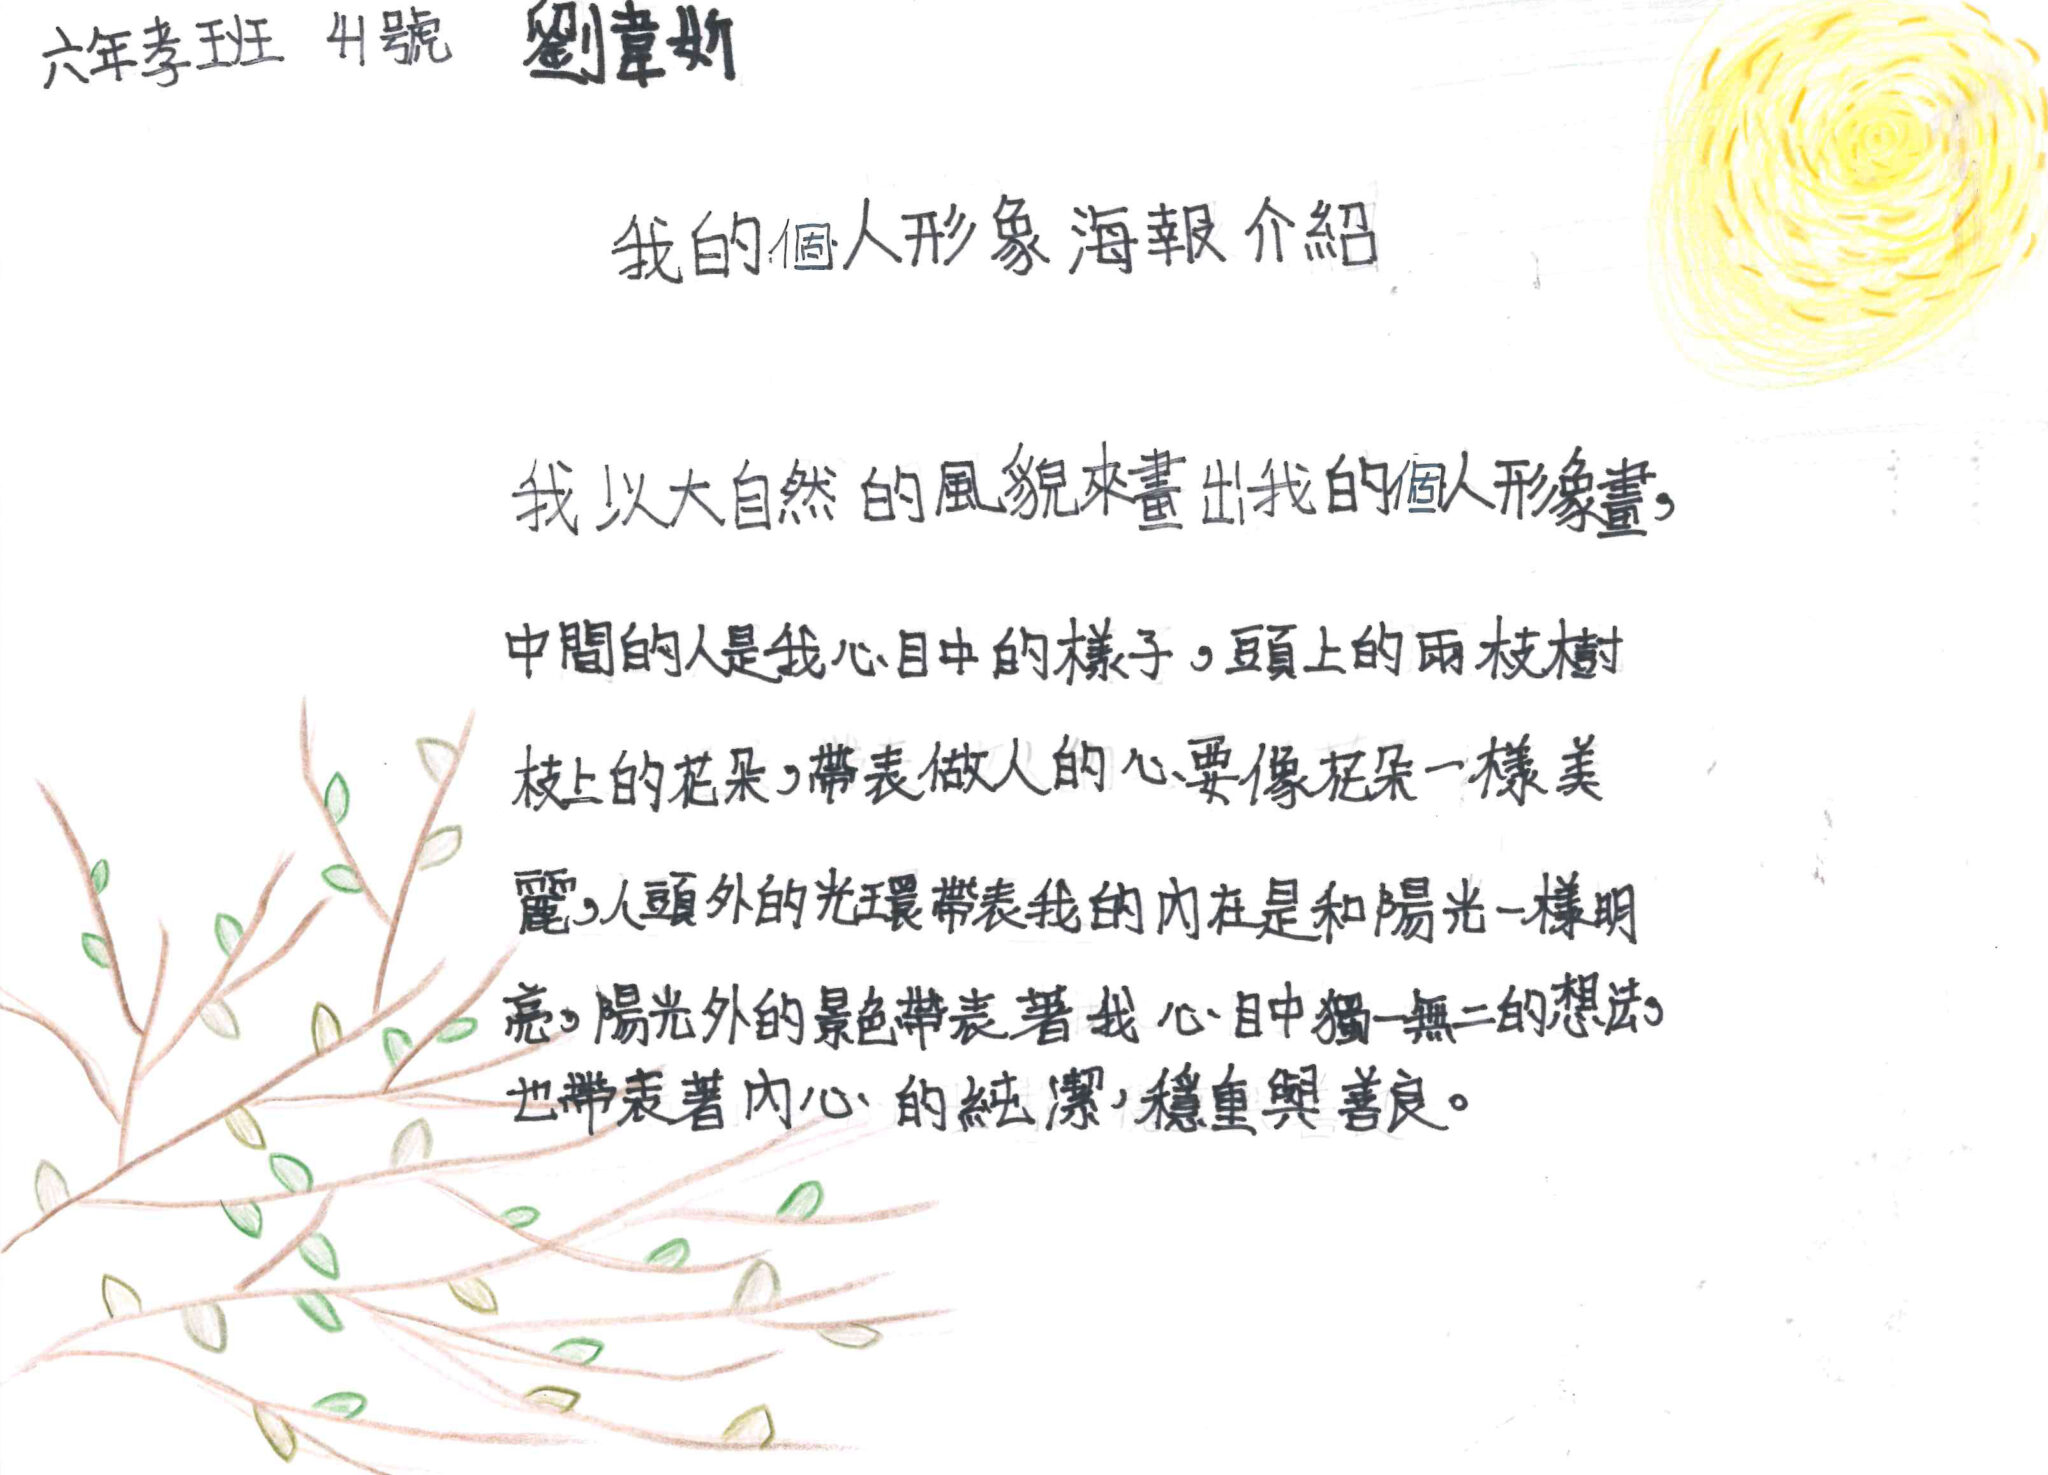 六年孝班 41號 劉韋妡
我的個人形象海報介紹
我以大自然的風貌來畫出我的個人形象畫,
中間的人是我心目中的樣子,頭上的兩枝樹
枝上的花朵,帶表做人的心要像花朵一樣美
麗,人頭外的光環帶表我的內在是和陽光一樣明
亮,陽光外的景色帶表著我心目中獨一無二的想法,
也帶表著內心的純潔,穩重與善良。